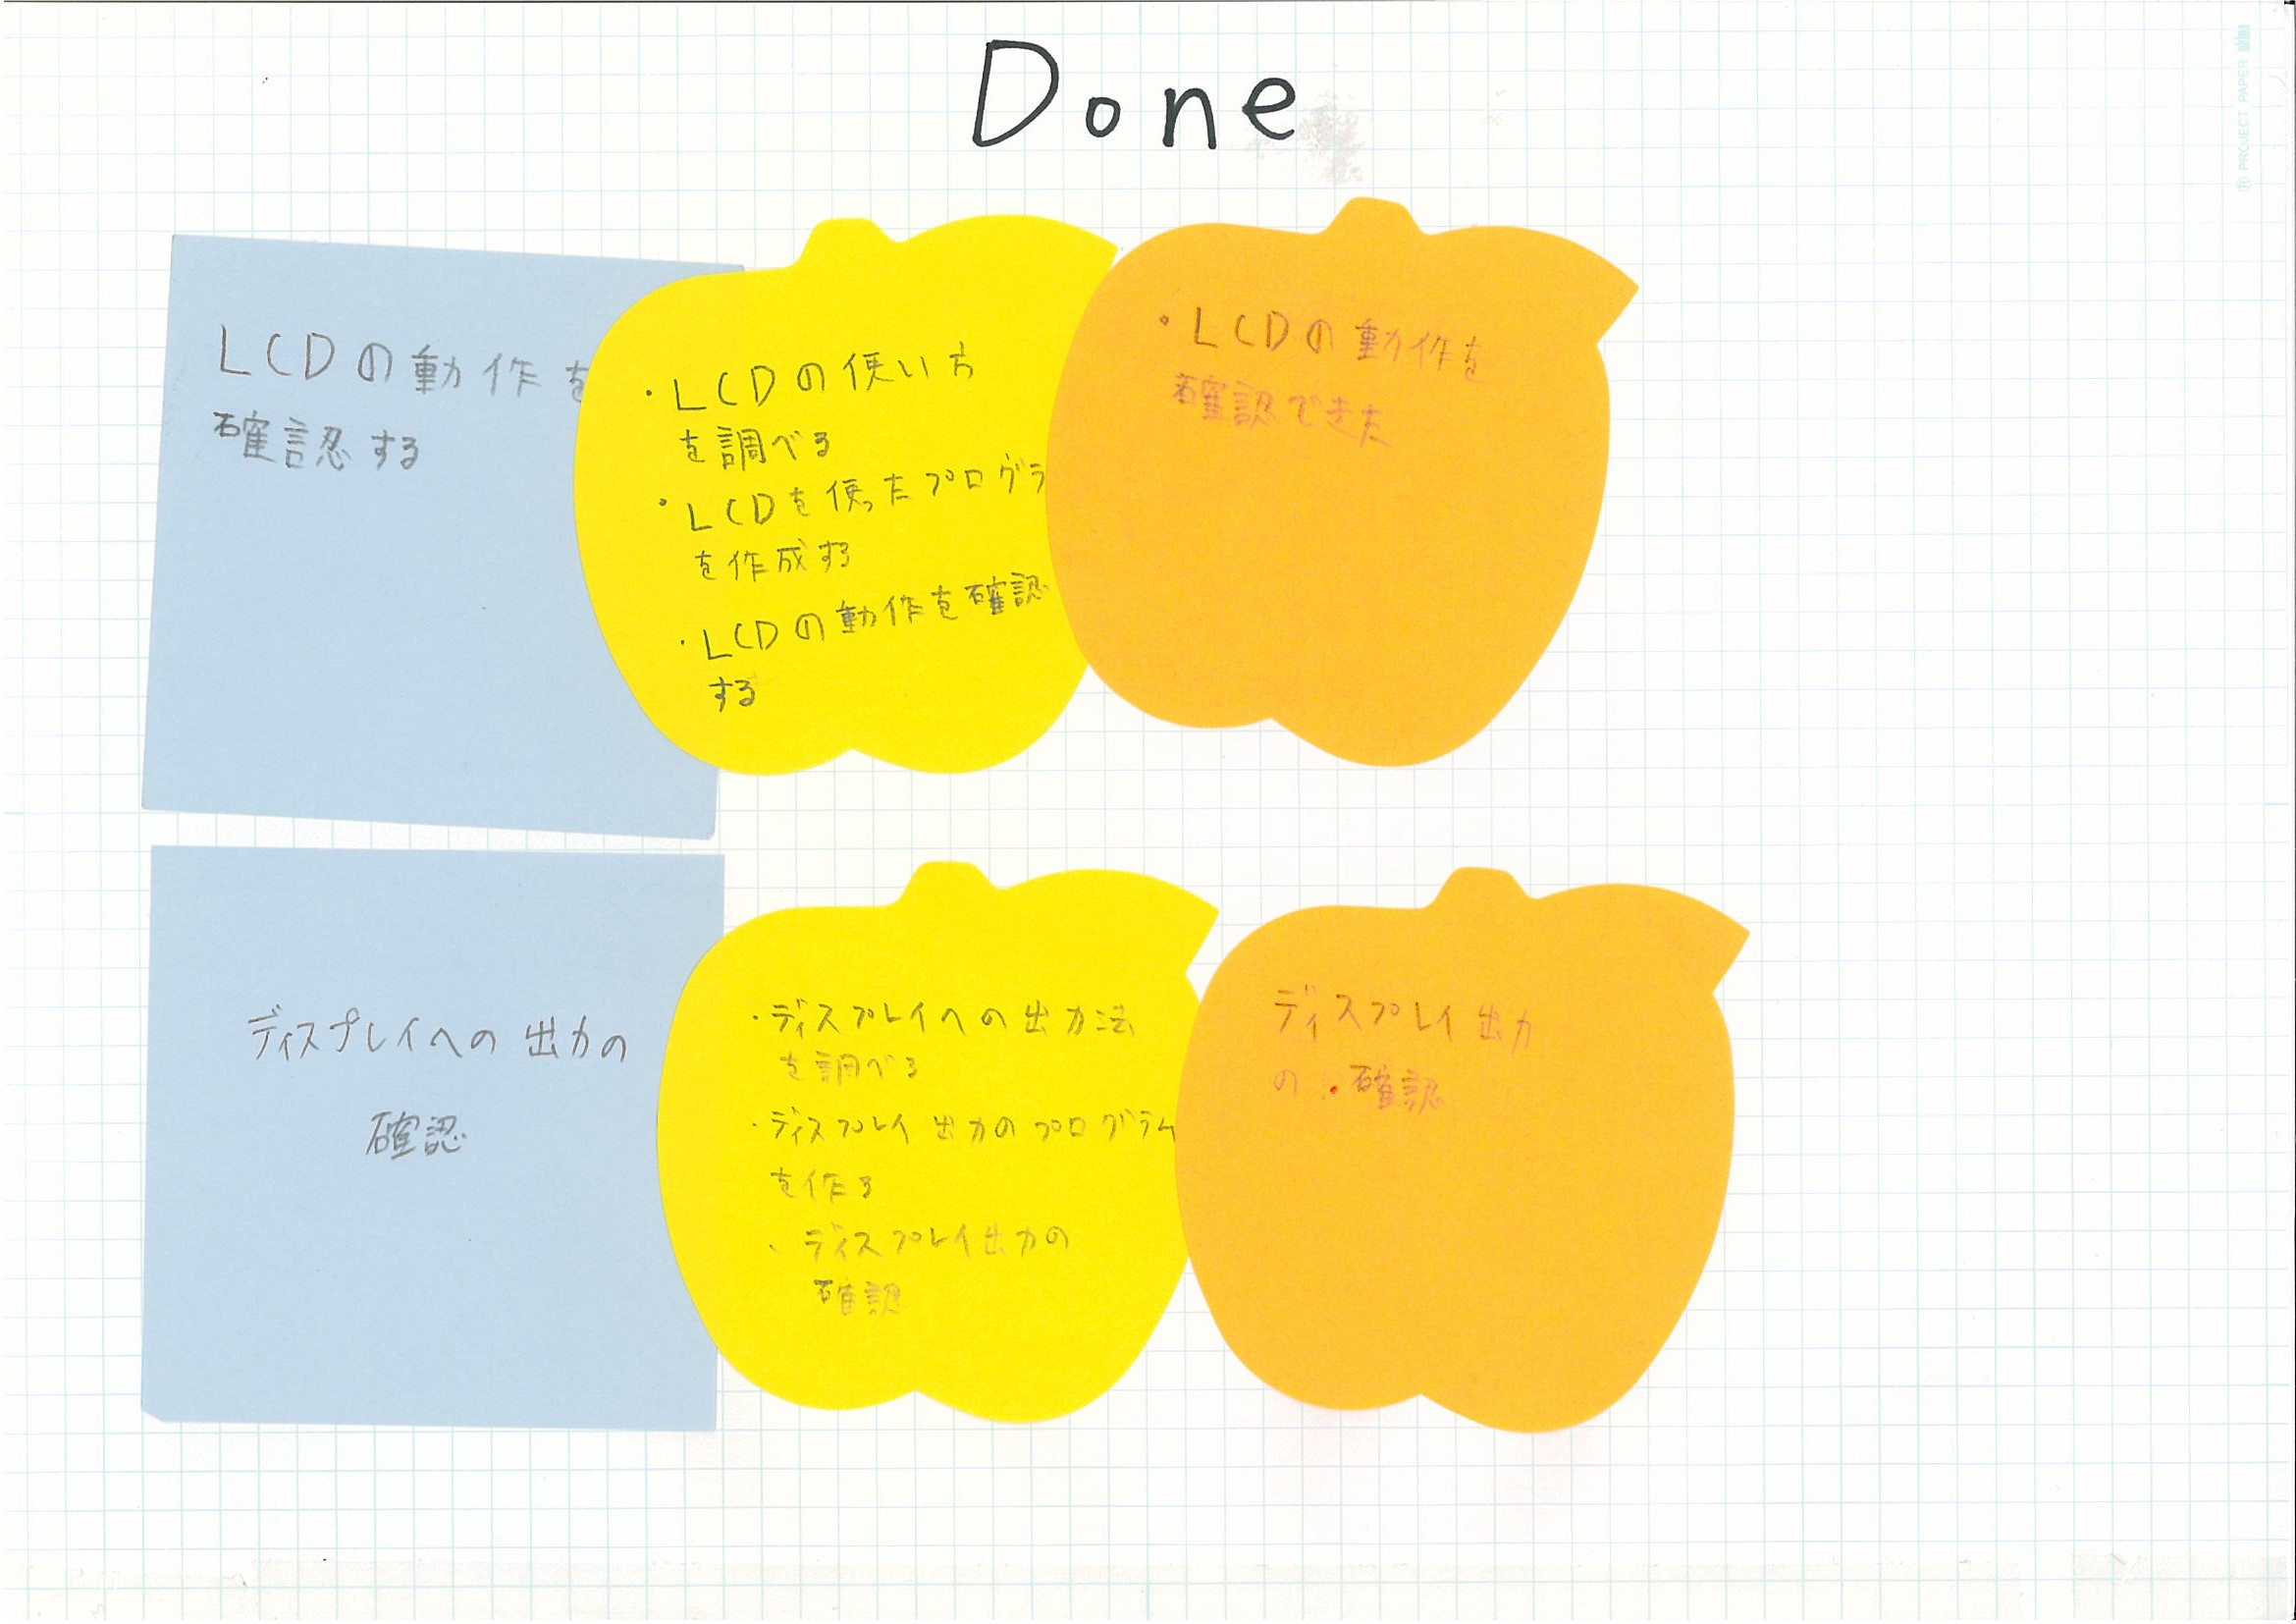 Done
LCDの動作を
確認する
・LCDの使い方
を調べる
・LCDを使ったプログラ
を作成する
・LCDの動作を確認
する
・LCDの動作を
確認できた
ディスプレイへの出力の
確認
・ディスプレイへの出力法
を調べる
・ディスプレイ出力のプログラム
を作る
・ディスプレイ出力の
確認
ディスプレイ出力
の・確認
PROJECT PAPER